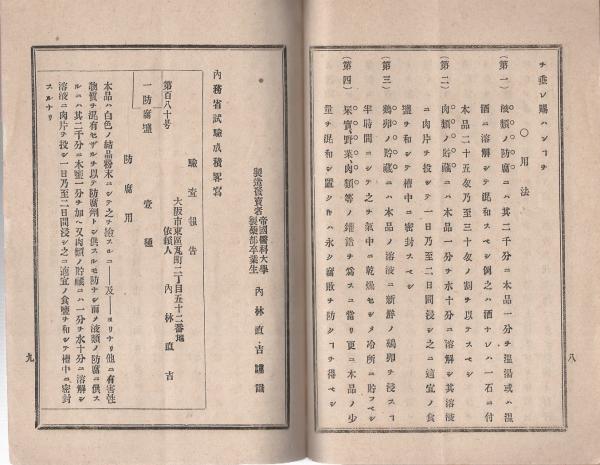 チ垂レ賜ハンコヿチ
〇用法
(第一)液類ノ防腐ニハ其二千分ニ本品一分チ温湯或ハ温
酒ニ溶解シテ混和スベシ例之ハ酒ナレハ一石ニ付
本品二十五匁乃至三十匁ノ割チ以テスベシ
(第二)肉類ノ貯蔵ニハ本品一分チ水十分ニ溶解シ其溶液
ニ肉片チ投シテ一日乃至二日間浸シ之ニ適宜ノ食
鹽チ和シテ樽中ニ密封スベシ
(第三)鶏卵ノ貯蔵ニハ本品ノ溶液ニ新鮮ノ鶏卵チ浸スヿ
半時間ニシテ之チ気中ニ乾燥セシメ冷所ニ貯フベシ
(第四)果實野菜肉類等ノ鑵詰チ為スニ當リ更ニ本品ノ少
量チ混和シ置クキハ永ク腐敗チ防クヿチ得ベシ
八
製造發賣者
帝國醫科大學
製藥部卒業生
内林直吉謹識
内務省試験成績畧寫
檢査報告
大阪市東區瓦町二丁目五十二番地
依頼人 内林直吉
第百八十号
一防腐鹽 壹種
防腐用
本品ハ白色ノ結晶粉末ニシテ之チ檢スルニ――及――ヨリナリ他ニ有害性
物質チ混有セザルチ以テ防腐劑トシ供スルモ妨ナシ而メ液類ノ防腐ニ供ス
ルニハ其二千分ニ本鹽一分チ加ヘ又肉類ノ貯蔵ニハ一分チ水十分ニ溶解シ
溶液ニ肉片チ投シ一日乃至二日間浸シ之ニ適宜ノ食鹽チ和シテ樽中ニ密封
スルナリ
九